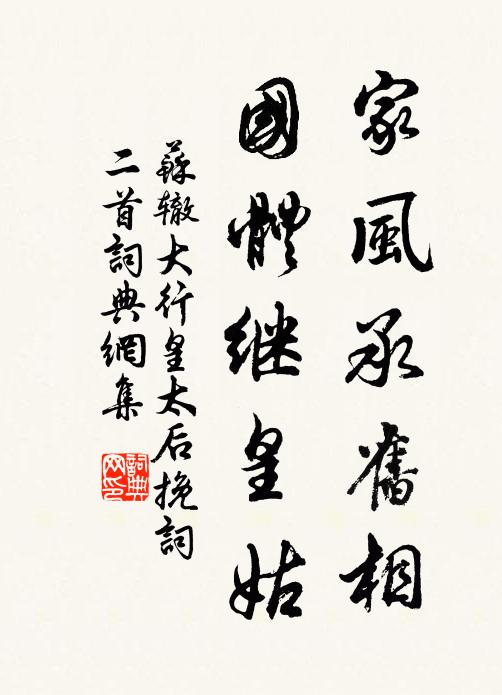 家風承舊相
國體继皇姑
蘇辙大行皇太后挽詞
二首詞典網集
詞典网印